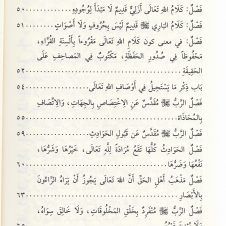 فَصْلٌ: كَلَامُ اللهِ تَعَالَى أَزَلِيٌّ قَدِيمٌ لَا مُبْتَدَأَ لِوُجُودِهِ ٥٠
فَصْلٌ: كَلَامُ البَارِي ﷻ قَدِيمٌ لَيْسَ بِحُرُوفٍ وَلَا أَصْوَاتٍ ٥١
فَصْلٌ: في معنى كون كَلَامِ اللهِ تَعَالَى مَقْرُوءاً بِأَلْسِنَةِ القُرَّاءِ،
مَحْفُوظاً في صُدُورِ الحَفَظَةِ، مَكْتُوبٌ في المَصَاحِفِ عَلَى
الحَقِيقَةِ ٥٢
بَابُ ذِكْرِ مَا يَسْتَحِيلُ فِي أَوْصَافِ اللهِ تَعَالَى ٥٤
فَصْلٌ: الرَّبُّ ﷻ مُقَدَّسٌ عَنِ الاخْتِصَاصِ بِالجِهَاتِ، وَالاتِّصَافِ
بِالمُحَاذَاةِ ٥٥
فَصْلٌ: الرَّبُّ ﷻ مُقَدَّسٌ عَنْ قَبُولِ الحَوَادِثِ ٥٩
فَصْلٌ: الحَوَادِثُ كُلُّهَا تَقَعُ مُرَادَةً لِلَّهِ تَعَالَى، خَيْرُهَا وَشَرُّهَا،
نَفْعُهَا وَضَرُّهَا ٦٠
فَصْلٌ: مَذْهَبُ أَهْلِ الحَقِّ أَنَّ اللهَ تَعَالَى يَجُوزُ أَنْ يَرَاهُ الرَّاءُونَ
بِالأَبْصَارِ ٦٣
فَصْلٌ: الرَّبُّ ﷻ مُتَفَرِّدٌ بِخَلْقِ المَخْلُوقَاتِ، وَلَا خَالِقَ سِوَاهُ،